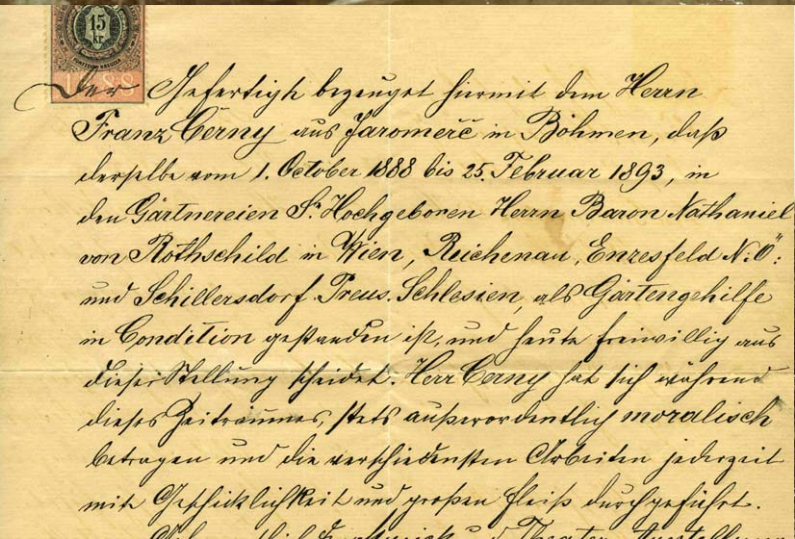 15
kr.
1888
Der Gefertigte bezeuget hiermit dem Herrn
Franz Černy aus Jaromerč in Böhmen, daß
derselbe vom 1. October 1888 bis 25. Februar 1893, in
den Gärtnereien Sr. Hochgeboren Herrn Baron Nathaniel
von Rothschild in Wien, Reichenau, Enzesfeld N: Ö:
und Schillersdorf Preus. Schlesien, als Gartengehilfe
in Condition gestanden ist, und heute freiwillig aus
dieser Stellung scheidet. Herr Černy hat sich während
dieses Zeitraumes, stets außerwordentlich moralisch
betragen und die verschiedensten Arbeiten jederzeit
mit Geschicklichkeit und großen Fleiß durchgeführt.
und Theater